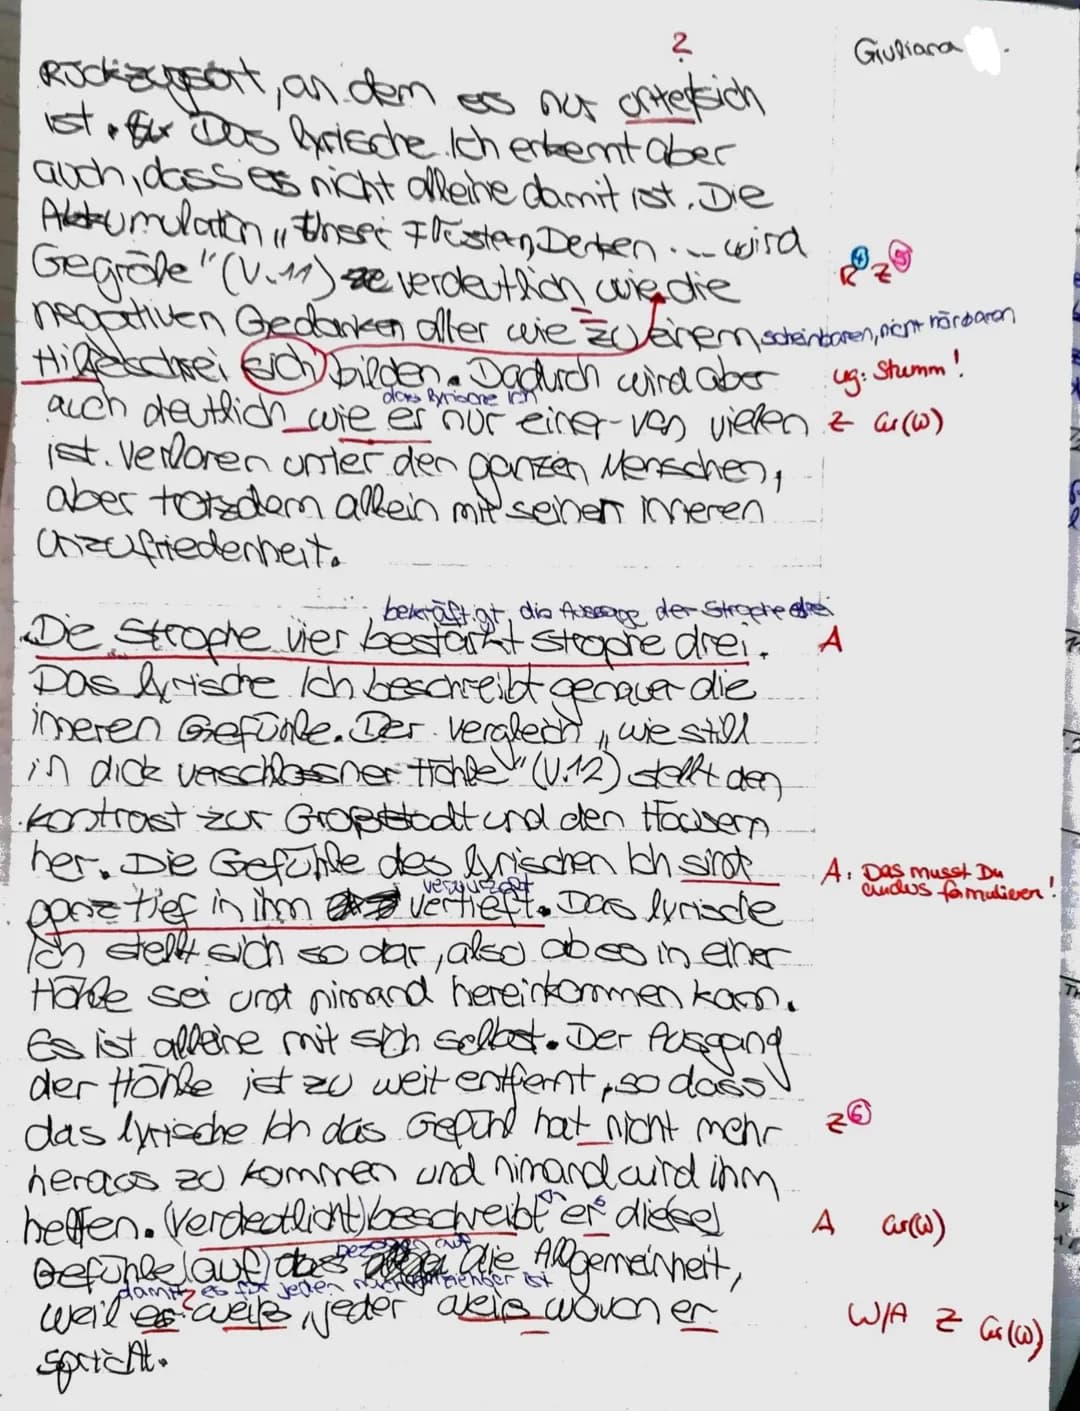 ?
Giuliana
Rückzugsort, an dem es nur unter sich
ist. Das lyrische Ich erkennt aber
auch, dass es nicht alleine damit ist. Die
Akkumulation „Unser Flüstern, Denken ... wird
Gegröle" (V.11) verdeutlich wie die
R④ Z⑤
negativen Gedanken aller wie zu einem scheinbaren, nicht hörbaren
Hilfeschrei sich bilden. Dadurch wird aber
ug: Stumm!
das lyrische Ich
auch deutlich wie er nur einer von vielen
Z Gr(W)
ist. Verloren unter den ganzen Menschen,
aber trotzdem allein mit seinen inneren
Unzufriedenheit.
bekräftigt die Aussage der Strophe drei
Die Strophe vier bestärkt Strophe drei.
A
Das lyrische Ich beschreibt genauer die
inneren Gefühle. Der Vergleich „wie still
in dick verschlossner Höhle" (V.12) stellt den
Kontrast zur Großstadt und den Häusern
her. Die Gefühle des lyrischen Ich sind
A: Das musst Du anders formulieren!
verwurzelt
ganz tief in ihm vertieft. Das lyrische
Ich stellt sich so dar, also ob es in einer
Höhle sei und nimand hereinkommen kann.
Es ist alleine mit sich selbst. Der Ausgang
der Höhle ist zu weit entfernt, so dass
das lyrische Ich das Gefühl hat nicht mehr
Z⑥
heraus zu kommen und nimand wird ihm
helfen. (Verdeutlicht) beschreibt er diese
A Gr(W)
bezogen auf
Gefühle (auf) die Allgemeinheit,
damit es für jeden nachvollziehbar ist
weil es? weiß, jeder weiß wovon er
W/A Z Gr(W)
spricht.